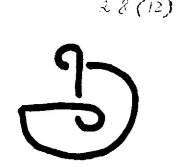 28 (12)